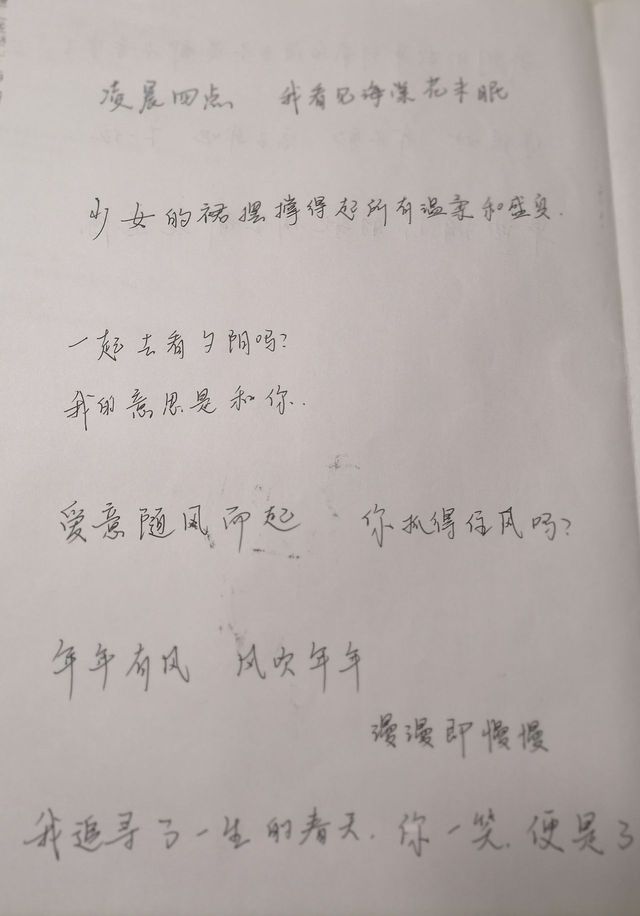 凌晨四点 我看见海棠花未眠
少女的裙摆撑得起所有温柔和盛夏.
一起去看夕阳吗?
我的意思是和你.
爱意随风而起 你抓得住风吗?
年年有风 风吹年年
漫漫即慢慢
我追寻了一生的春天.你一笑.便是了